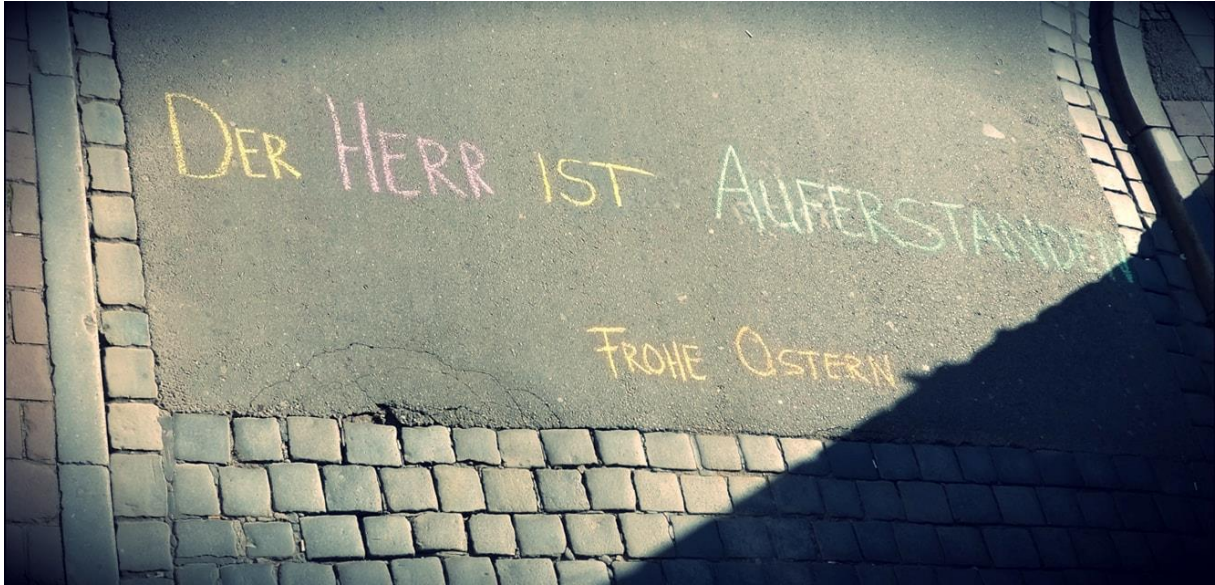 DER HERR IST AUFERSTANDEN
FROHE OSTERN